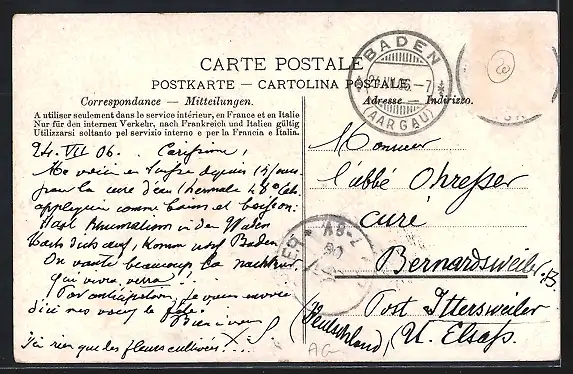 CARTE POSTALE
POSTKARTE — CARTOLINA POSTALE
Correspondance — Mitteilungen.
Adresse — Indirizzo.
A utiliser seulement dans le service intérieur, en France et en Italie
Nur für den internen Verkehr, nach Frankreich und Italien gültig
Utilizzarsi soltanto pel servizio interno e per la Francia e Italia.
BADEN
(AARGAU)
24. VII 06. Carissime,
Me voici en Suisse depuis 15 jours
pour la cure d'eau thermale 48°
appliquée comme bains et boisson.
Hast Rheumatism in den Waden
Komm nach Baden
On vante beaucoup la
qui vivra verra!
Par anticipation je vous envoie
d'ici mes vœux de fête.
Bien à vous
Ici rien que des fleurs cultivées...
Monsieur
l'abbé Ohresser
curé
Bernardsweiler
Post Ittersweiler
(Deutschland) U. Elsaß.
AG